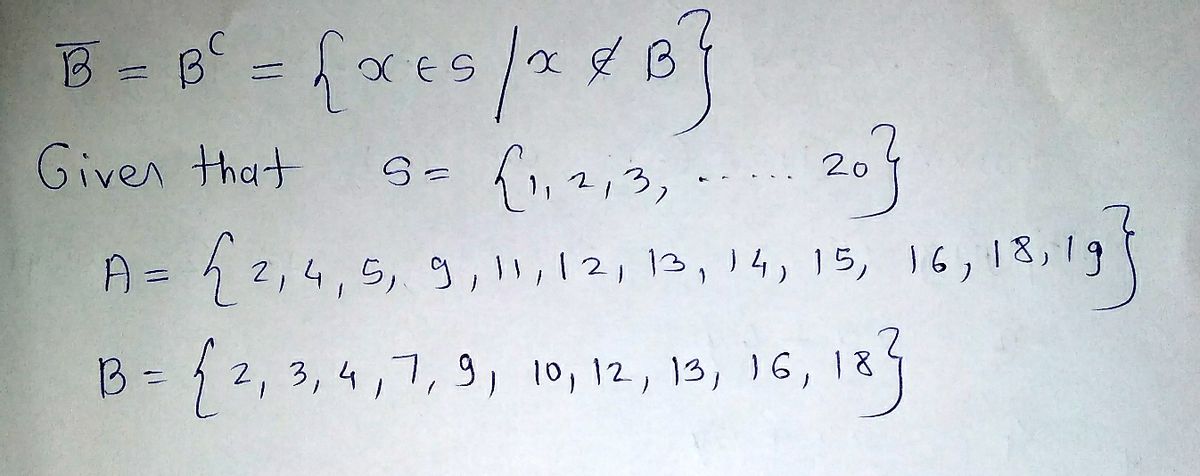 B̅ = Bᶜ = {x ∈ S / x ∉ B}
Given that S = {1, 2, 3, ...... 20}
A = {2, 4, 5, 9, 11, 12, 13, 14, 15, 16, 18, 19}
B = {2, 3, 4, 7, 9, 10, 12, 13, 16, 18}